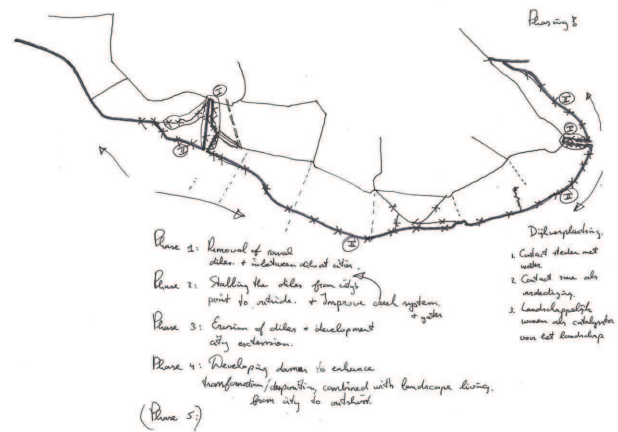 Phasing:
I
I
I
II
II
II
II
Phase 1: Removal of
dikes. + inbetween dikes at cities.
Phase 2: Stalling the dikes from city's
point to outside. + Improve creek system.
+ gates
Phase 3: Erosion of dikes + development
city extension.
Phase 4: Developing dames to enhance
transformation/deposition, combined with landscape living.
from city to outskirt.
(Phase 5:)
Dijkverplaatsing.
1. Contact steden met
water.
2. Contact zone als
verdediging.
3. Landschappelijk
wonen als catalysator
voor het landschap